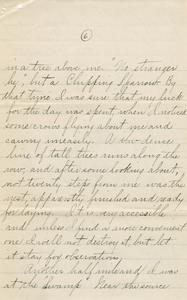 6
in a tree above me. "No stranger
by", but a Chipping Sparrow. By
that time I was sure that my luck
for the day was spent when I noticed
some crows flying about me and
cawing uneasily. A dense
line of tall trees runs along the
row, and after some looking about,
not twenty steps from one was the
nest, apparently finished and ready
for laying. It is very accessible
and unless I find a more convenient
one I will not destroy it but let
it stay for observation.
Another half mile and I was
at the swamp. Near the source